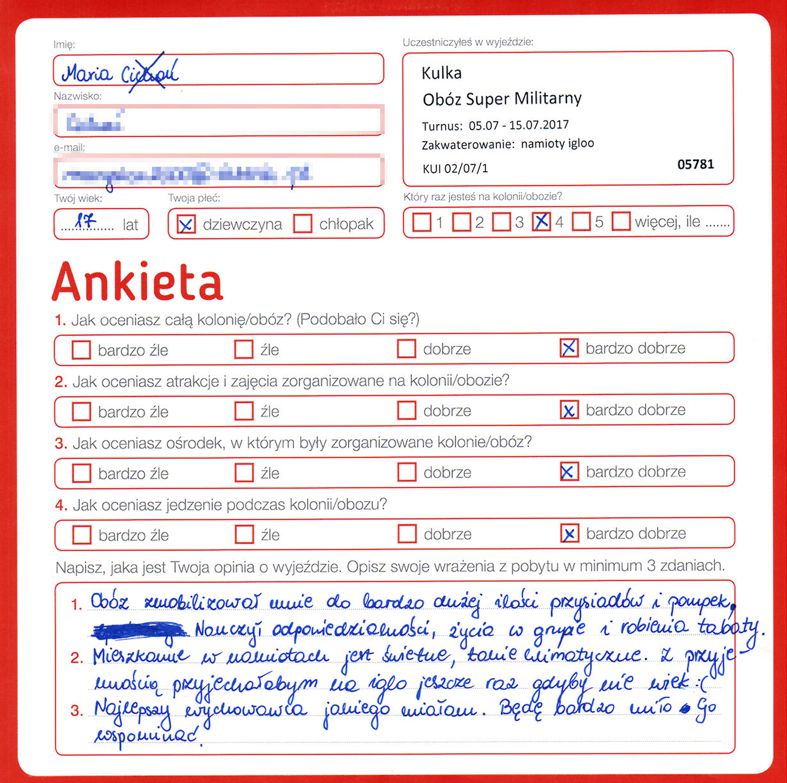 Imię:
Maria
Nazwisko:
e-mail:
Twój wiek:
17 lat
Twoja płeć:
dziewczyna chłopak
Uczestniczyłeś w wyjeździe:
Kulka
Obóz Super Militarny
Turnus: 05.07 - 15.07.2017
Zakwaterowanie: namioty igloo
KUI 02/07/1 05781
Który raz jesteś na kolonii/obozie?
1 2 3 4 5 więcej, ile .......
Ankieta
1. Jak oceniasz całą kolonię/obóz? (Podobało Ci się?)
bardzo źle źle dobrze bardzo dobrze
2. Jak oceniasz atrakcje i zajęcia zorganizowane na kolonii/obozie?
bardzo źle źle dobrze bardzo dobrze
3. Jak oceniasz ośrodek, w którym były zorganizowane kolonie/obóz?
bardzo źle źle dobrze bardzo dobrze
4. Jak oceniasz jedzenie podczas kolonii/obozu?
bardzo źle źle dobrze bardzo dobrze
Napisz, jaka jest Twoja opinia o wyjeździe. Opisz swoje wrażenia z pobytu w minimum 3 zdaniach.
1. Obóz zmobilizował mnie do bardzo dużej ilości przysiadów i pompek.
Nauczył odpowiedzialności, życia w grupie i robienia tabaty.
2. Mieszkanie w namiotach jest świetne, takie klimatyczne. Z przyje-
mnością przyjechałabym na iglo jeszcze raz gdyby nie wiek :(
3. Najlepszy wychowawca jakiego miałam. Będę bardzo miło Go
wspominać.